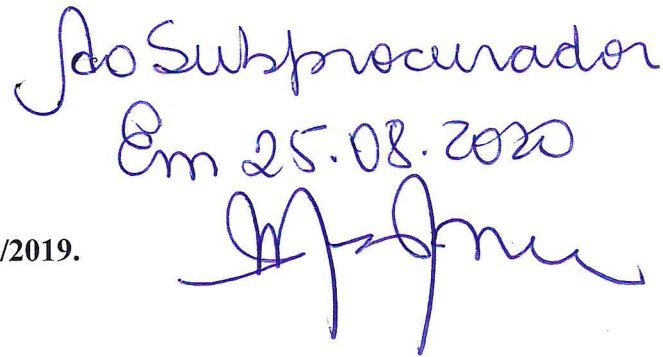 Ao Subprocurador
Em 25.08.2020
/2019.